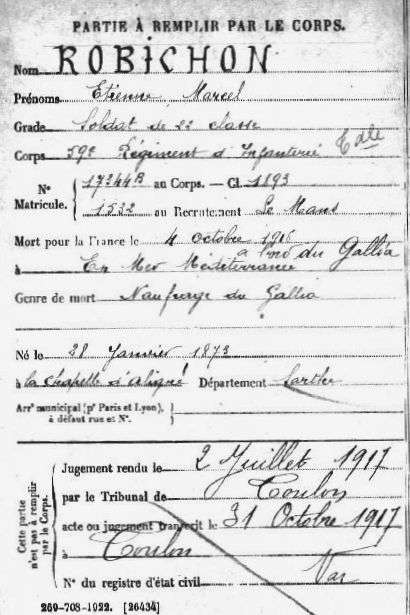 PARTIE À REMPLIR PAR LE CORPS.
Nom ROBICHON
Prénoms Etienne Marcel
Grade Soldat de 2e classe
Corps 59e Régiment d'Infanterie Tale
N° Matricule. 17344B au Corps. — Cl. 1893
1532 au Recrutement Le Mans
Mort pour la France le 4 octobre 1916
à En Mer Méditerranée à bord du Gallia
Genre de mort Naufrage du Gallia
Né le 28 Janvier 1873
à la chapelle d'aligné Département Sarthe
Arrt municipal (pr Paris et Lyon), à défaut rue et N°.
Cette partie n'est pas à remplir par le Corps.
Jugement rendu le 2 Juillet 1917
par le Tribunal de Toulon
acte ou jugement transcrit le 31 Octobre 1917
à Toulon
N° du registre d'état civil Var
269-708-1922. [26434]